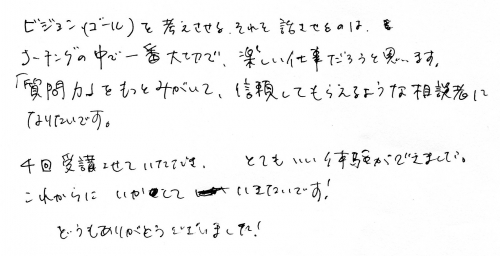 ビジョン(ゴール)を考えさせる、それを話させるのは、
コーチングの中で一番大切で、楽しい仕事だろうと思います。
「質問力」をもっとみがいて、信頼してもらえるような相談者に
なりたいです。
4回受講させていただき、とてもいい体験ができました。
これからに いかして いきたいです!
どうもありがとうございました!